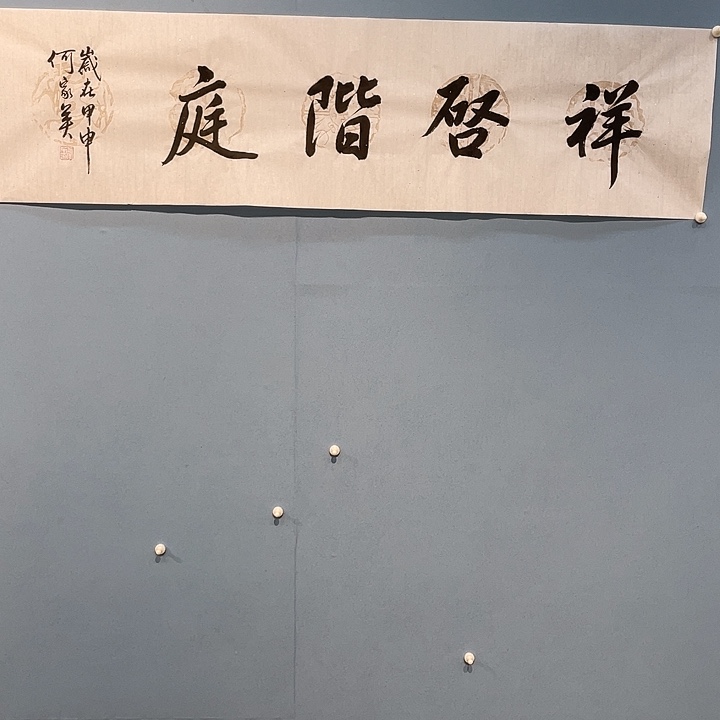 祥啓階庭
歲在甲申
何家英